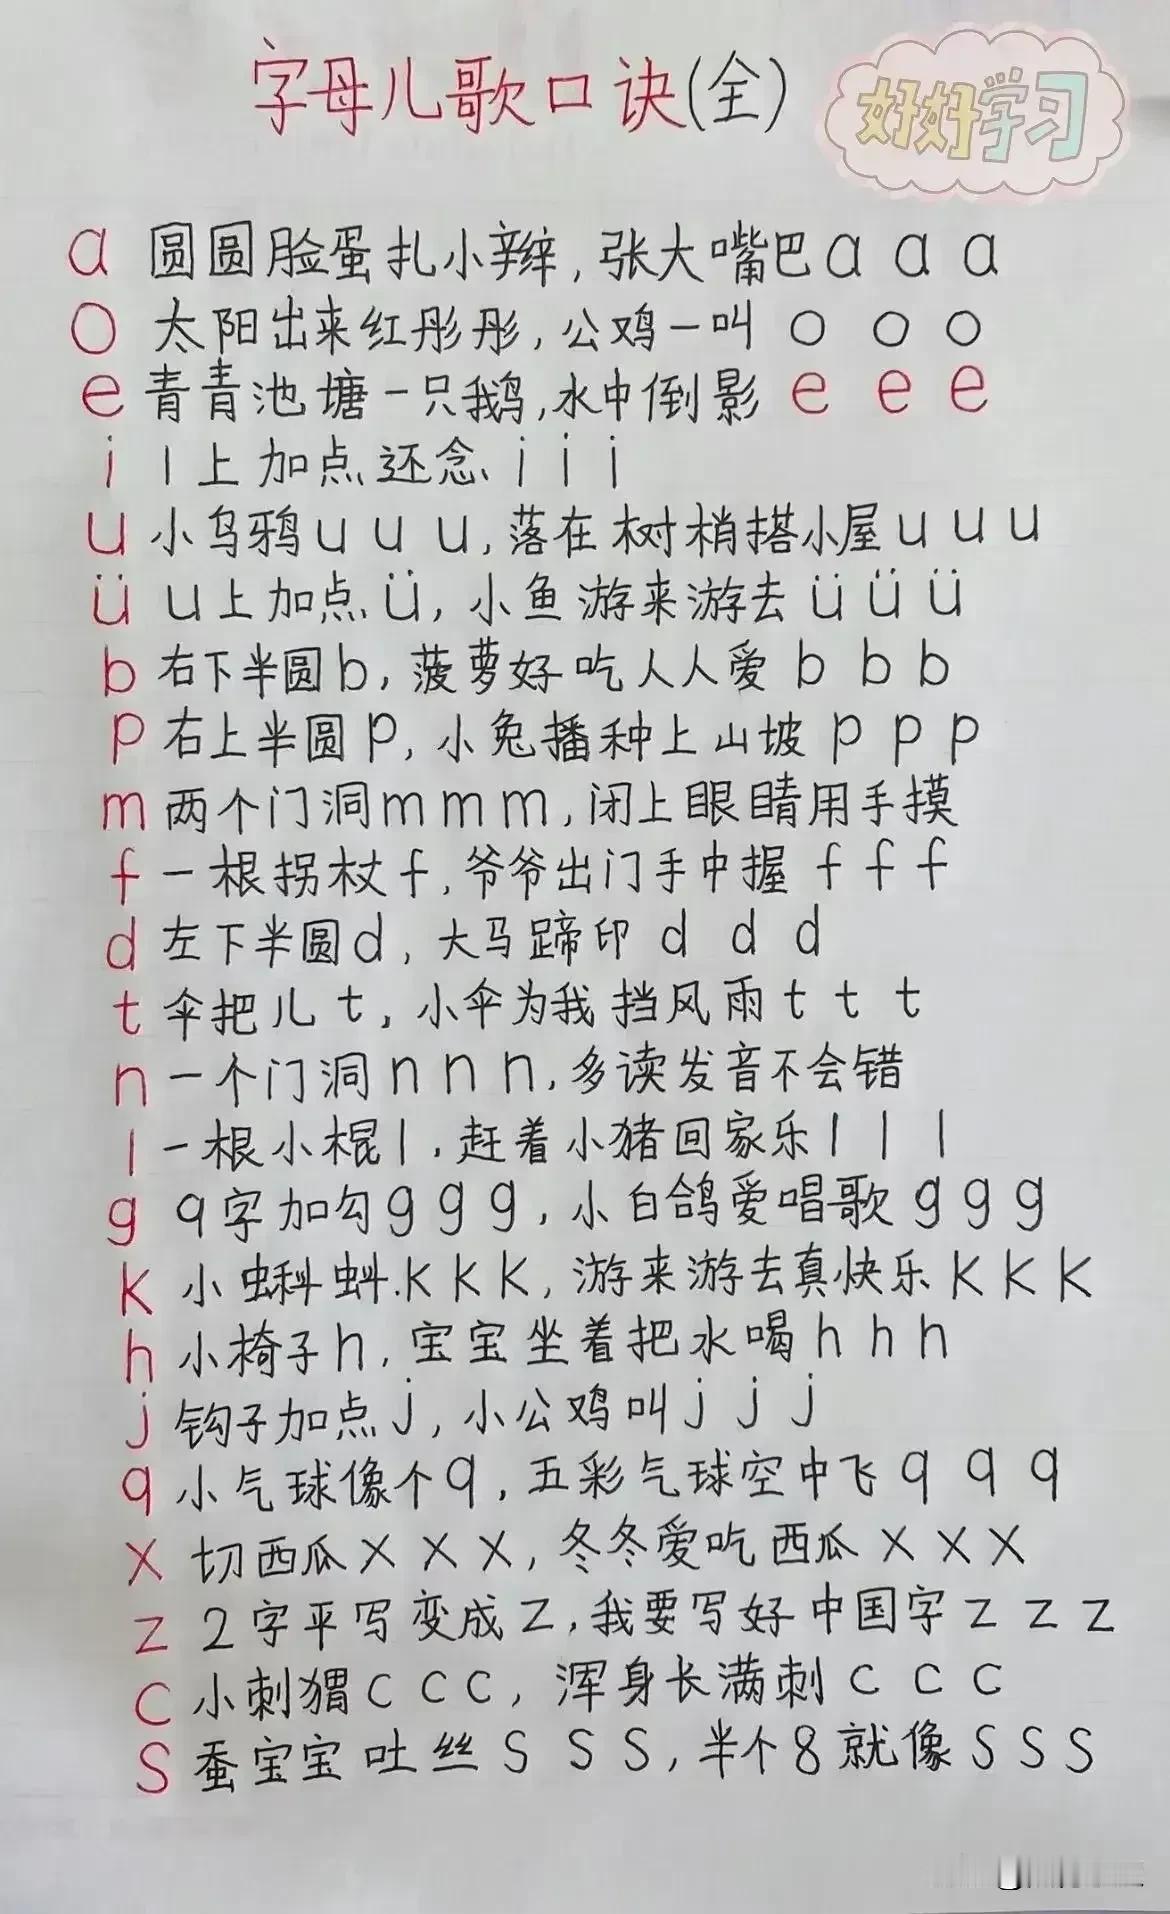 字母儿歌口诀(全)
好好学习
a 圆圆脸蛋扎小辫,张大嘴巴a a a
o 太阳出来红彤彤,公鸡一叫 o o o
e 青青池塘一只鹅,水中倒影 e e e
i 1上加点还念 i i i
u 小乌鸦u u u,落在树梢搭小屋u u u
ü u上加点ü,小鱼游来游去 ü ü ü
b 右下半圆b,菠萝好吃人人爱 b b b
p 右上半圆p,小兔播种上山坡 p p p
m 两个门洞m m m,闭上眼睛用手摸
f 一根拐杖f,爷爷出门手中握 f f f
d 左下半圆d,大马蹄印 d d d
t 伞把儿t,小伞为我挡风雨t t t
n 一个门洞n n n,多读发音不会错
l 一根小棍l,赶着小猪回家乐l l l
g 9字加勾g g g,小白鸽爱唱歌g g g
k 小蝌蚪.k k k,游来游去真快乐k k k
h 小椅子h,宝宝坐着把水喝h h h
j 钩子加点j,小公鸡叫j j j
q 小气球像个q,五彩气球空中飞q q q
x 切西瓜x x x,冬冬爱吃西瓜x x x
z 2字平写变成z,我要写好中国字z z z
c 小刺猬c c c,浑身长满刺c c c
s 蚕宝宝吐丝s s s,半个8就像s s s